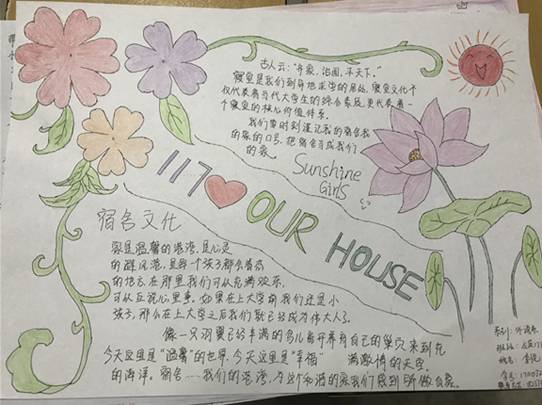 古人云："齐家,治国,平天下。"
寝室是我们到异地求学的居处,寝室文化不
仅代表着当代大学生的综合素质,更代表着一
个寝室的核心价值体系。
我们要时刻谨记我的宿舍我
的家的口号,把宿舍当成我们
的家。
Sunshine
Girls
117 OUR HOUSE
宿舍文化
家是温馨的港湾,是心灵
的避风港,是每个孩子都会眷恋
的地方在那里我们可以充满欢乐,
可以互说心里事,如果在上大学前我们还是小
孩子,那么在上大学之后我们就已经成为伟大人了。
像一只羽翼已经丰满的鸟儿离开养育自己的巢穴来到充
满激情的天空
今天这里是"温馨"的世界,今天这里是"幸福"
的海洋。宿舍——我们的港湾,
系别:
班级:
姓名:
学号: